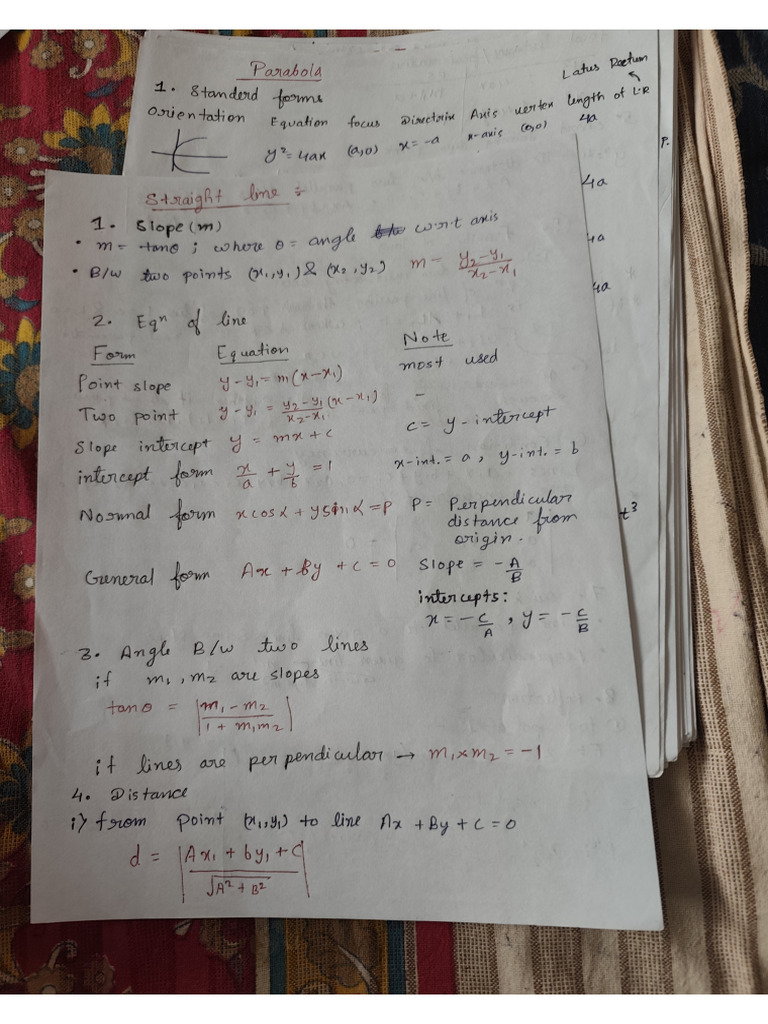 Parabola
1. Standerd forms
Latus Rectum
Orientation Equation focus Directrix Axis vertex length of L.R
y² = 4ax (a,0) x = -a x-axis (0,0) 4a
P.
4a
4a
4a
t³
Straight line :-
1. Slope (m)
• m = tanθ ; where θ = angle w.r.t axis
• B/w two points (x₁,y₁) & (x₂,y₂) m = y₂-y₁/x₂-x₁
2. Eqⁿ of line
Form Equation Note
Point slope y-y₁ = m(x-x₁) most used
Two point y-y₁ = y₂-y₁/x₂-x₁ (x-x₁) -
Slope intercept y = mx+c c = y-intercept
intercept form x/a + y/b = 1 x-int. = a, y-int. = b
Normal form x cosα + y sinα = P P = Perpendicular
distance from
origin.
General form Ax + By + c = 0 Slope = -A/B
intercepts:
x = -c/A , y = -c/B
3. Angle B/w two lines
if m₁, m₂ are slopes
tanθ = |m₁-m₂/1+m₁m₂|
if lines are perpendicular → m₁×m₂ = -1
4. Distance
i) from point (x₁,y₁) to line Ax + By + c = 0
d = |Ax₁ + by₁ + C/√A²+B²|